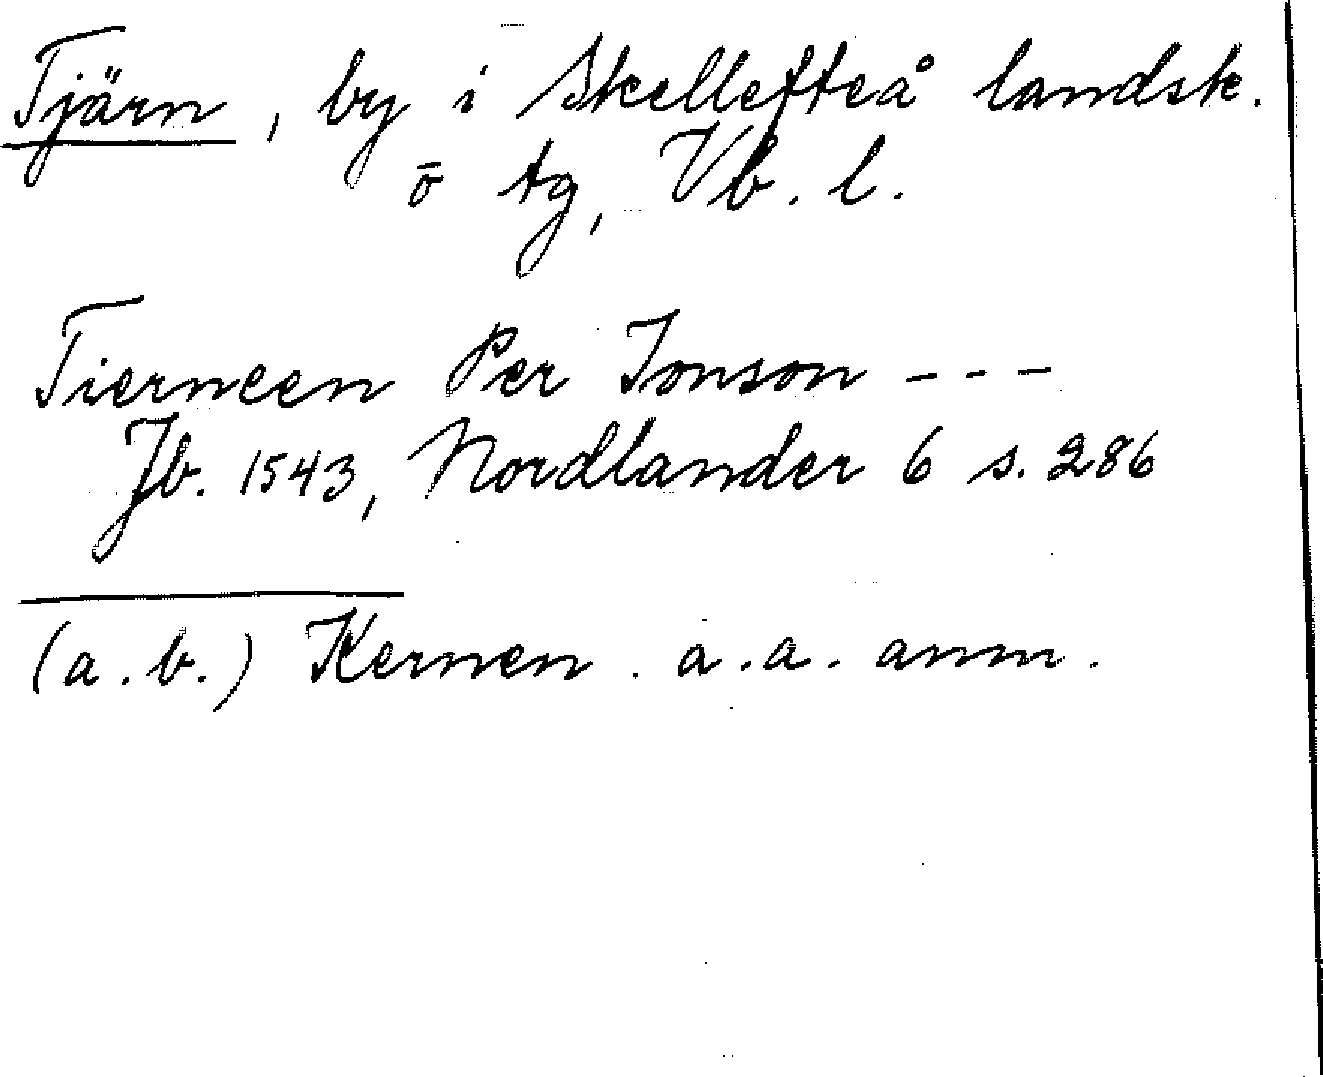 Tjärn, by i Skellefteå landsk.
ö tg, Vb. l.
Tierneen Per Jonson ---
Jb. 1543, Nordlander 6 s. 286
(a. b.) Kernen. a.a. anm.